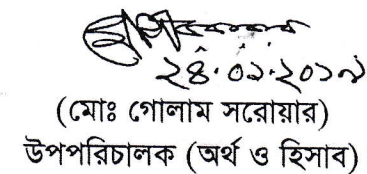 ২৪.০১.২০১৯
(মোঃ গোলাম সরোয়ার)
উপপরিচালক (অর্থ ও হিসাব)